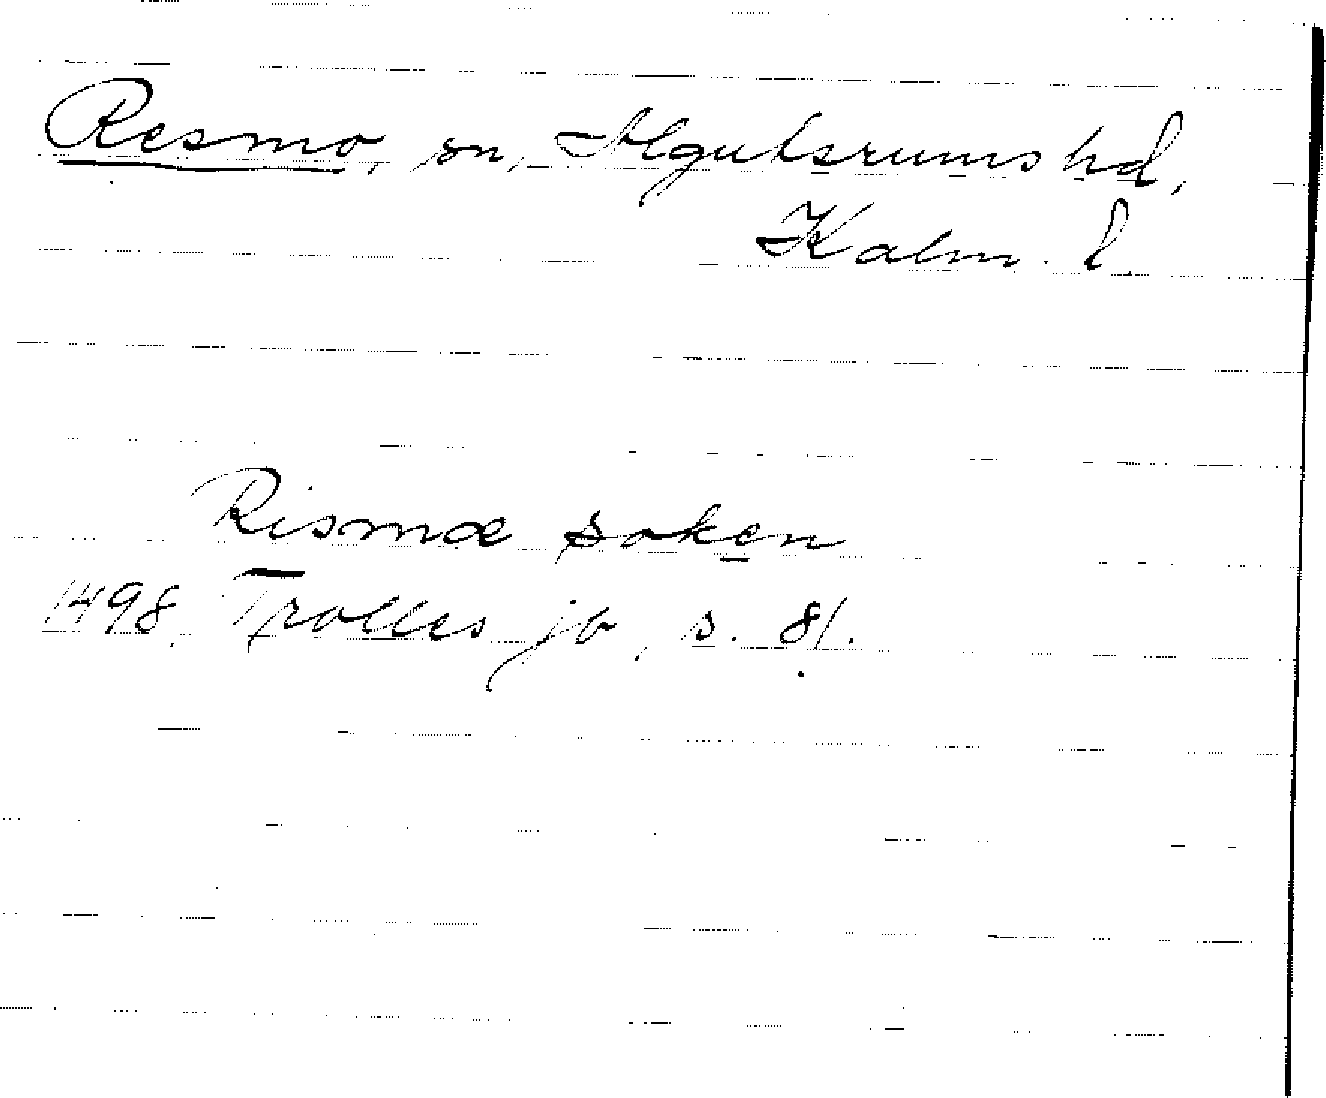 Resmo, sn, Algutsrums hd,
Kalm. l.
Rismæ soken
1498. Trolles jb, s. 81.